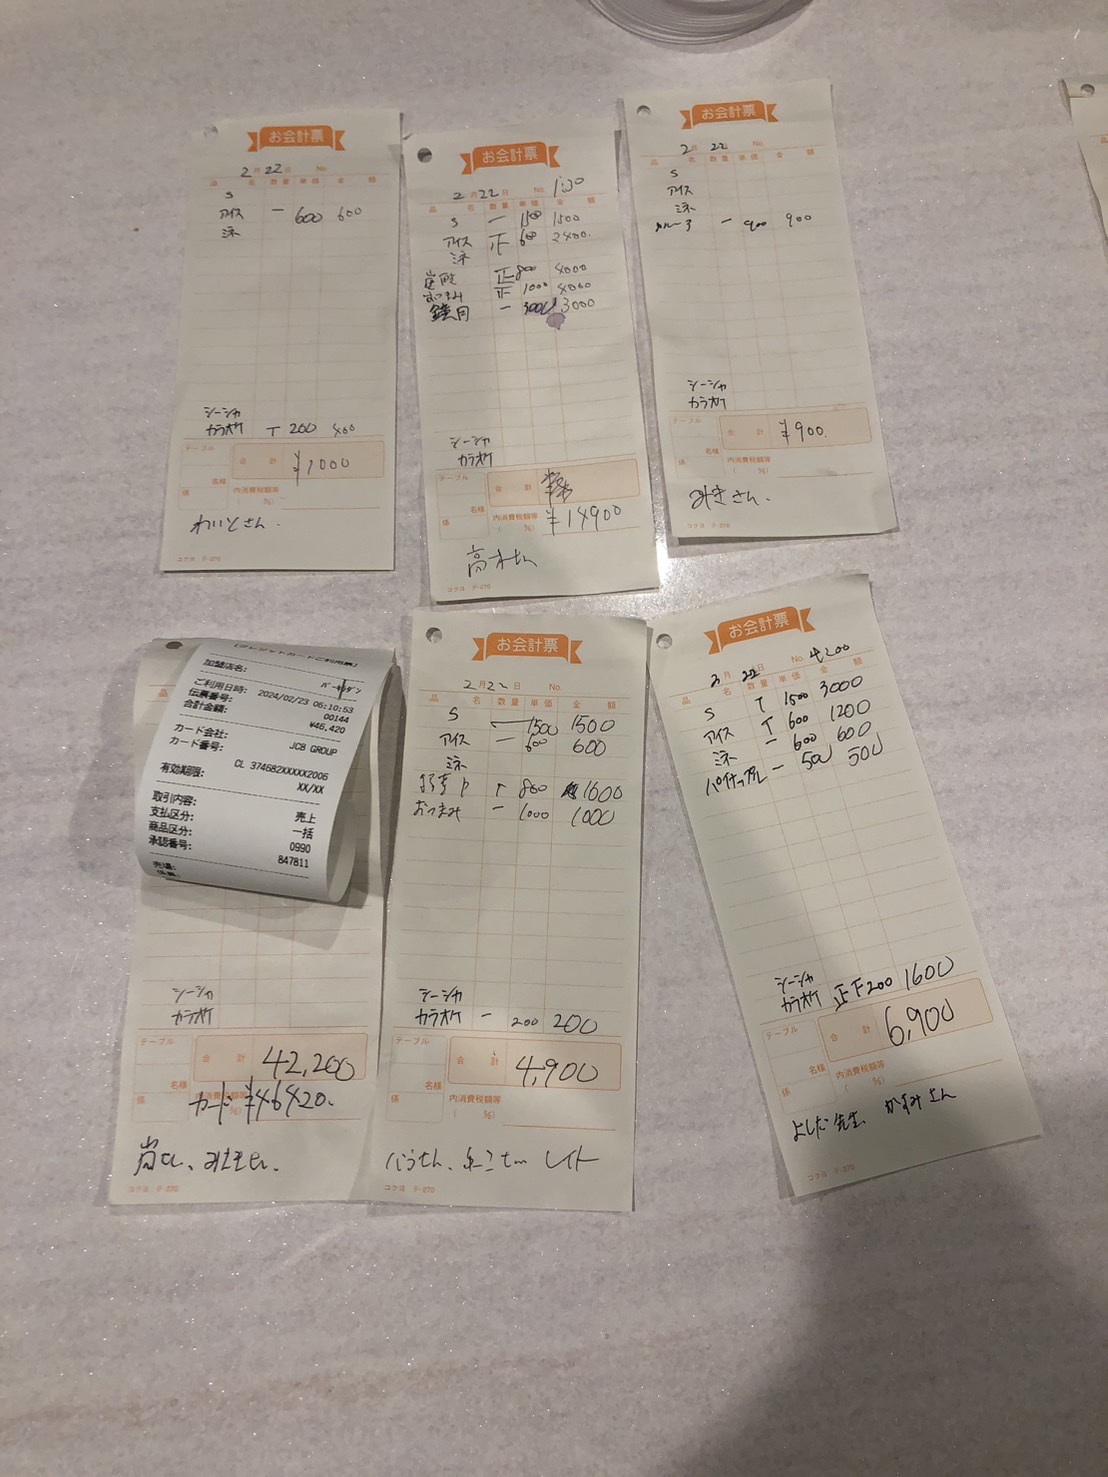 お会計票
2月22日 No.
品 名 数量 単価 金 額
S
アイス 一 600 600
ミネ
シーシャ
カラオケ T 200 400
テーブル 合 計 ¥1000
名様 内消費税額等
係 ( %)
れいとさん.
コクヨ テ-270
お会計票
2月22日 No. 1:30
品 名 数量 単価 金 額
S 一 1500 1500
アイス 正 600 2400.
ミネ
正 800 4000
おつまみ 正 1000 4000
鏡月 一 3000 3000
シーシャ
カラオケ
合 計
名様 内消費税額等 ¥14900
係 ( %)
コクヨ テ-270
お会計票
2月22日 No.
品 名 数量 単価 金 額
S
アイス
ミネ
一 900 900
シーシャ
カラオケ
テーブル 合 計 ¥900.
名様 内消費税額等
係 ( %)
みきさん.
コクヨ テ-270
「クレジットカードご利用票」
加盟店名:
ご利用日時: 2024/02/23 06:10:53
伝票番号: 00144
合計金額: ¥46,420
カード会社: JCB GROUP
カード番号: CL 374682XXXXX2006
有効期限: XX/XX
取引内容: 売上
支払区分: 一括
商品区分: 0990
承認番号: 847811
売場:
シーシャ
カラオケ
テーブル 合 計 42,200
名様 内消費税額等
係 カード ¥46420.
コクヨ テ-270
お会計票
2月22日 No.
品 名 数量 単価 金 額
S 一 1500 1500
アイス 一 600 600
ミネ
T 800 1600
おつまみ 一 1000 1000
シーシャ
カラオケ 一 200 200
テーブル 合 計 4,900
名様 内消費税額等
係 ( %)
レイト
コクヨ テ-270
お会計票
2月22日 No. 4200
品 名 数量 単価 金 額
S T 1500 3000
アイス T 600 1200
ミネ 一 600 600
パイナップル 一 500 500
シーシャ
カラオケ 正F 200 1600
テーブル 合 計 6,900
名様 内消費税額等
係 ( %)
よしだ先生、かすみさん
コクヨ テ-270